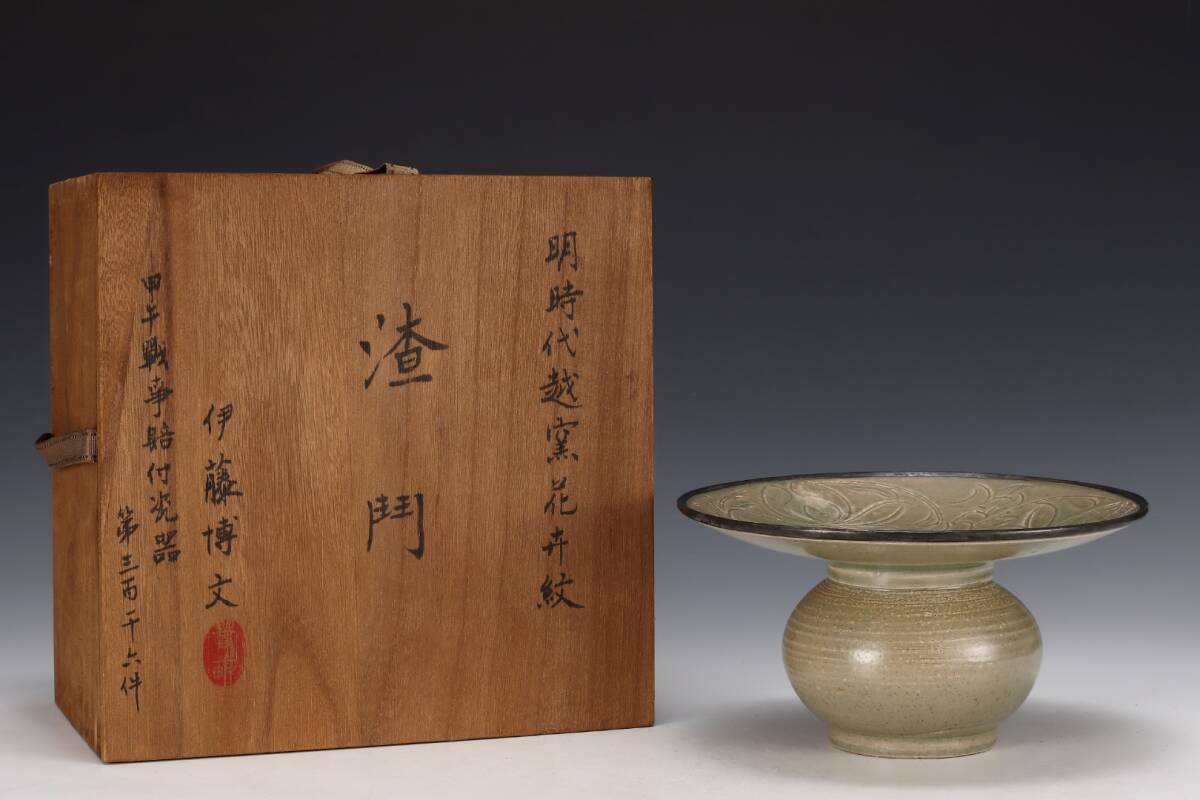 明時代越窯花卉紋
渣鬥
伊藤博文
甲午戰事賠付瓷器
第三百十六件